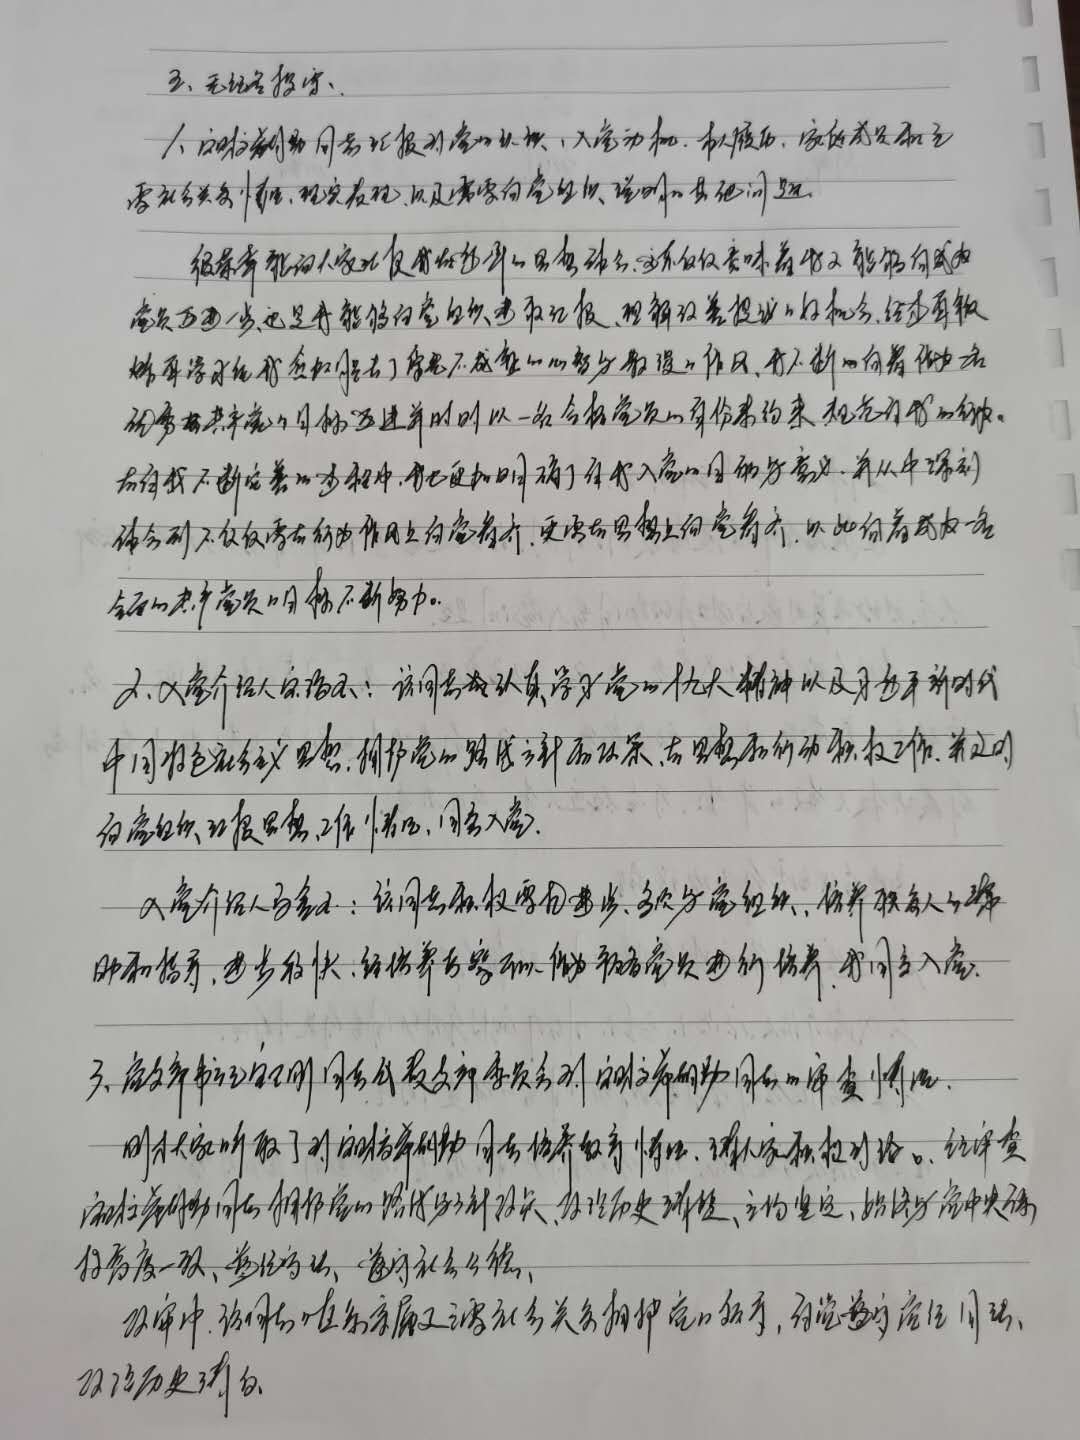 五、无记名投票、
1、同志汇报对党的认识、入党动机、本人履历、家庭成员和主
要社会关系情况、现实表现、以及需要向党组织说明的其他问题.
很荣幸能同大家汇报我在近年的思想体会、这不仅仅意味着我又能够向成为
党员迈进一步、也是我能够向党组织进取汇报、理解改善提议的好机会、经过
学习使我愈加脱去了不成熟的心智与散漫的作风、我不断的向着作为一名
优秀共产党的目标迈进并时时以一名合格党员的身份来约束、规范自我的行为。
在自我不断完善的过程中、我也更加明确了自我入党的目的与意义、并从中深刻
体会到不仅仅需在行为作风上向党看齐、更须在思想上向党看齐、以此向着成为一名
合格的共产党员的目标不断努力。
2、入党介绍人:该同志能认真学习党的十九大精神以及习近平新时代
中国特色社会主义思想、拥护党的路线方针和政策、在思想和行动积极工作、并及时
向党组织汇报思想、工作情况、同意入党.
入党介绍人:该同志积极要求进步、多次与党组织、培养联系人的帮
助和指导、进步较快、经培养考察可以作为预备党员进行培养、我同意入党.
3、党支部书记同志代表支部委员会对同志的审查情况.
刚才大家听取了对同志培养教育情况、请大家积极讨论。、经审查
同志拥护党的路线与方针政策、政治历史清楚、立场坚定、始终与党中央保
持高度一致、遵纪守法、遵守社会公德、
政审中、该同志的直系亲属及主要社会关系拥护党的领导、自觉遵守党纪国法、
政治历史清白.